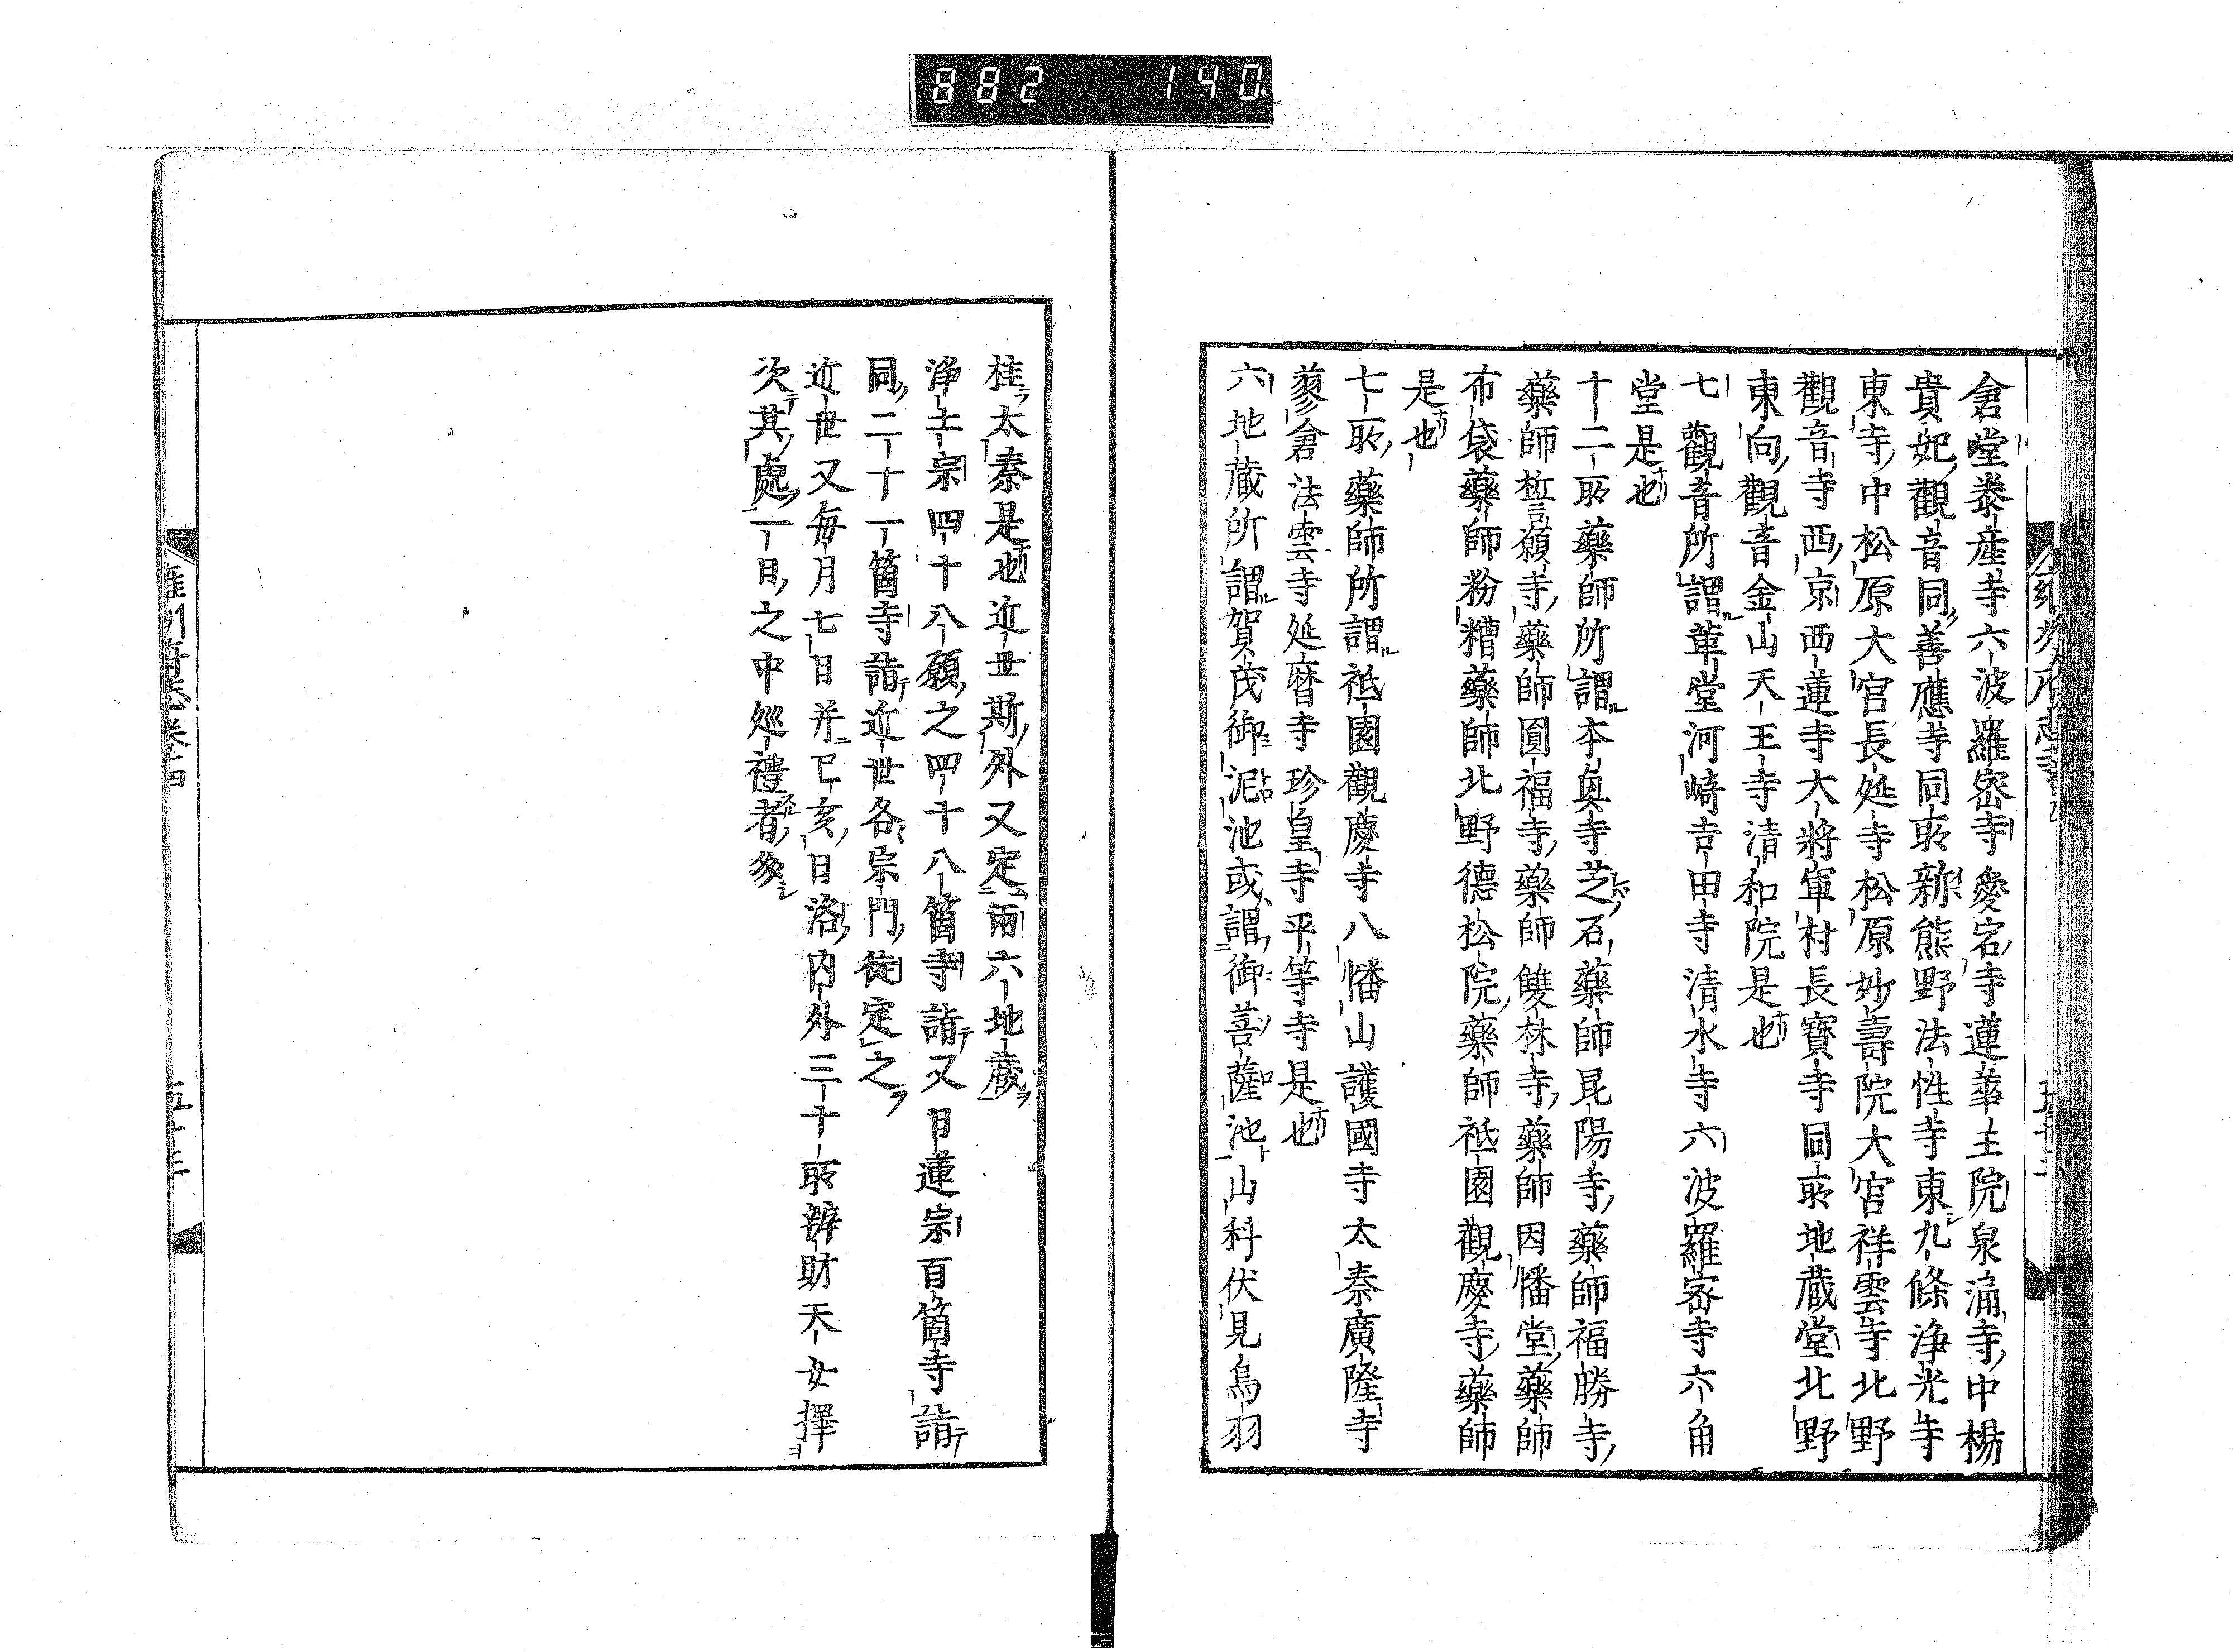 882 140.
倉堂泰産寺六波羅密寺愛宕寺蓮華王院泉涌寺中楊
貴妃觀音同善應寺同所新熊野法性寺東九條淨光寺
東寺中松原大宮長延寺松原妙壽院大宮祥雲寺北野
觀音寺西京西蓮寺大將軍村長寳寺同所地蔵堂北野
東向觀音金山天王寺清和院是也
七觀音所謂革堂河﨑吉田寺清水寺六波羅密寺六角
堂是也
十二所藥師所謂本奥寺芝石藥師昆陽寺藥師福勝寺
藥師誓願寺藥師圓福寺藥師雙林寺藥師因幡堂藥師
布袋藥師粉糟藥師北野德松院藥師祗園觀慶寺藥師
是也
七所藥師所謂祗園觀慶寺八幡山護國寺太秦廣隆寺
蓼倉法雲寺延暦寺珍皇寺平等寺是也
六地蔵所謂賀茂御泥池或謂御菩薩池山科伏見鳥羽
桂太秦是也近世斯外又定兩六地蔵
淨土宗四十八願之四十八箇寺詣又日蓮宗百箇寺詣
同二十一箇寺詣近世各宗門徒定之
近世又毎月七日并巳亥日洛内外三十所辨財天女擇
次其處一日之中廵禮者多
雍州府志卷四 五十三